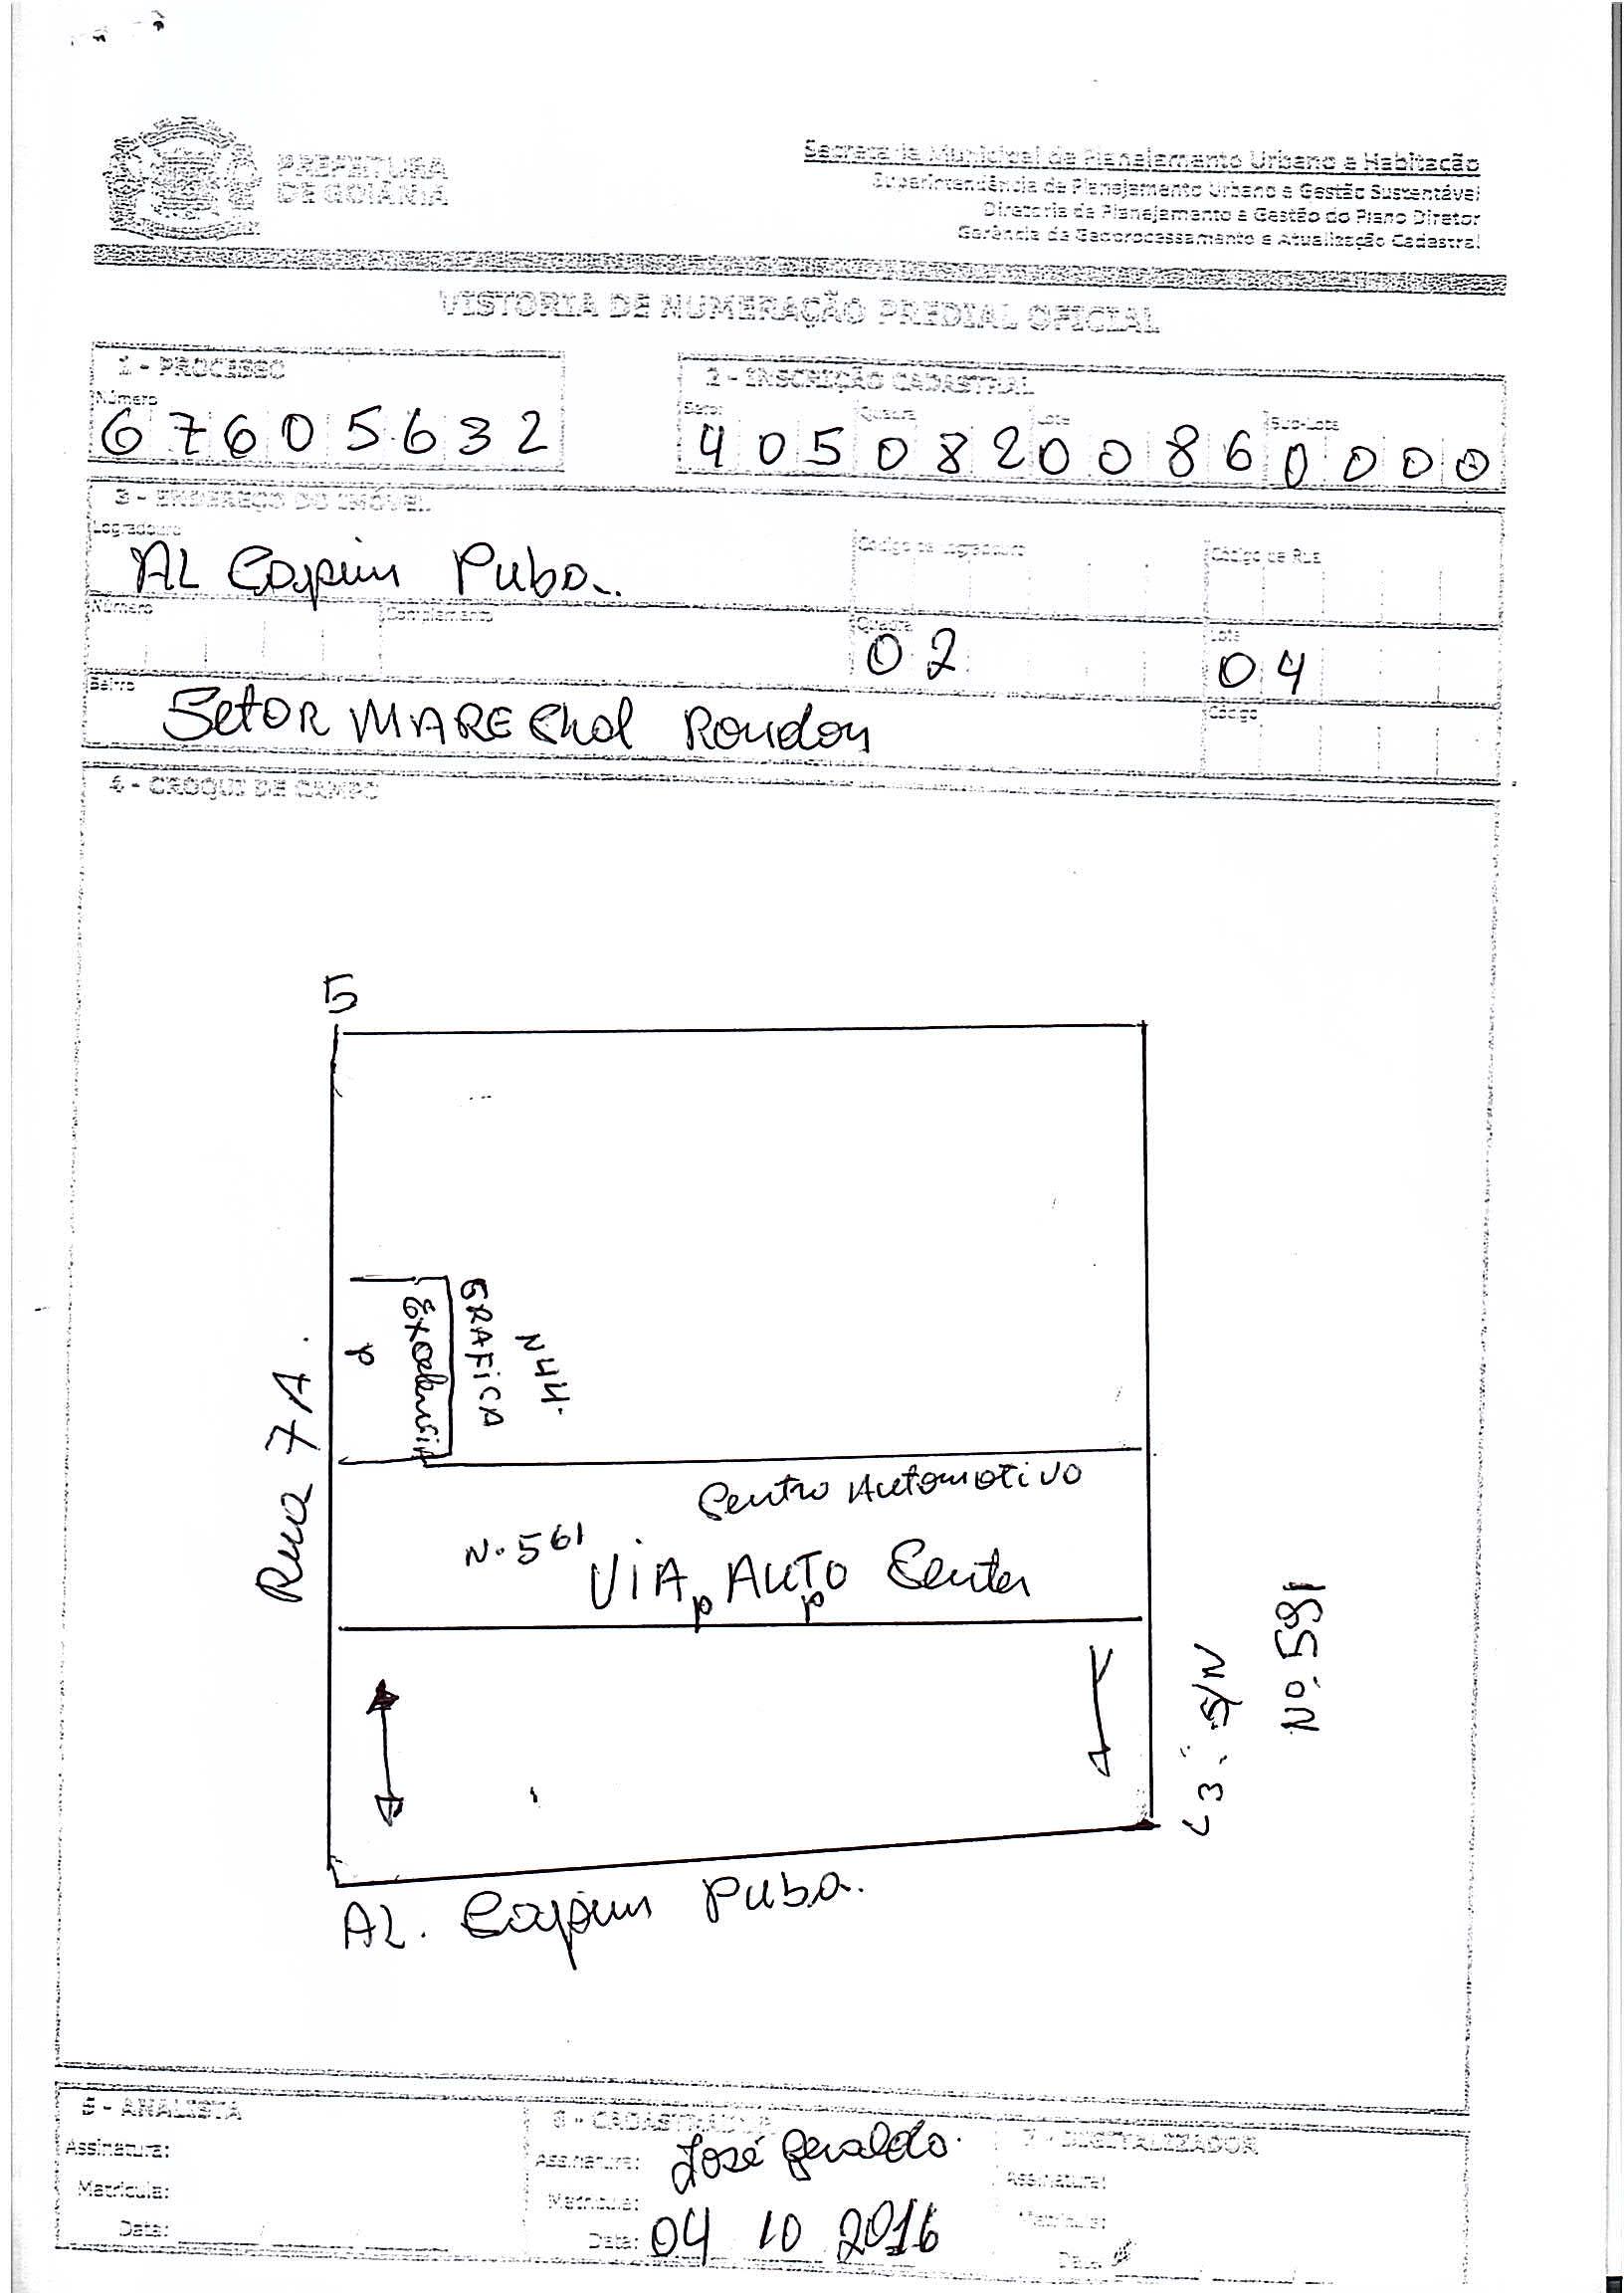 PREFEITURA
DE GOIÂNIA
Secretaria Municipal de Planejamento Urbano e Habitação
Superintendência de Planejamento Urbano e Gestão Sustentável
Diretoria de Planejamento e Gestão do Plano Diretor
Gerência de Geoprocessamento e Atualização Cadastral
VISTORIA DE NUMERAÇÃO PREDIAL OFICIAL
1 - PROCESSO
Número
67605632
2 - INSCRIÇÃO CADASTRAL
Setor Quadra Lote Sub-Lote
40508200860000
3 - ENDEREÇO DO IMÓVEL
Logradouro Código de Logradouro Código de Rua
AL Capim Puba.
Número Complemento Quadra Lote
02 04
Bairro Código
Setor MARECHal Rondon
4 - CROQUI DE CAMPO
5
Rua 7A.
GRAFICA
N44.
Centro Automotivo
N. 561 ViA AUTO Center
L3: S/N
Nº. 591
AL. Capim Puba.
5 - ANALISTA
Assinatura:
Matrícula:
Data:
6 - CADASTRADOR
Assinatura: José Geraldo.
Matrícula:
Data: 04 10 2016
7 - DIGITALIZADOR
Assinatura:
Matrícula:
Data: